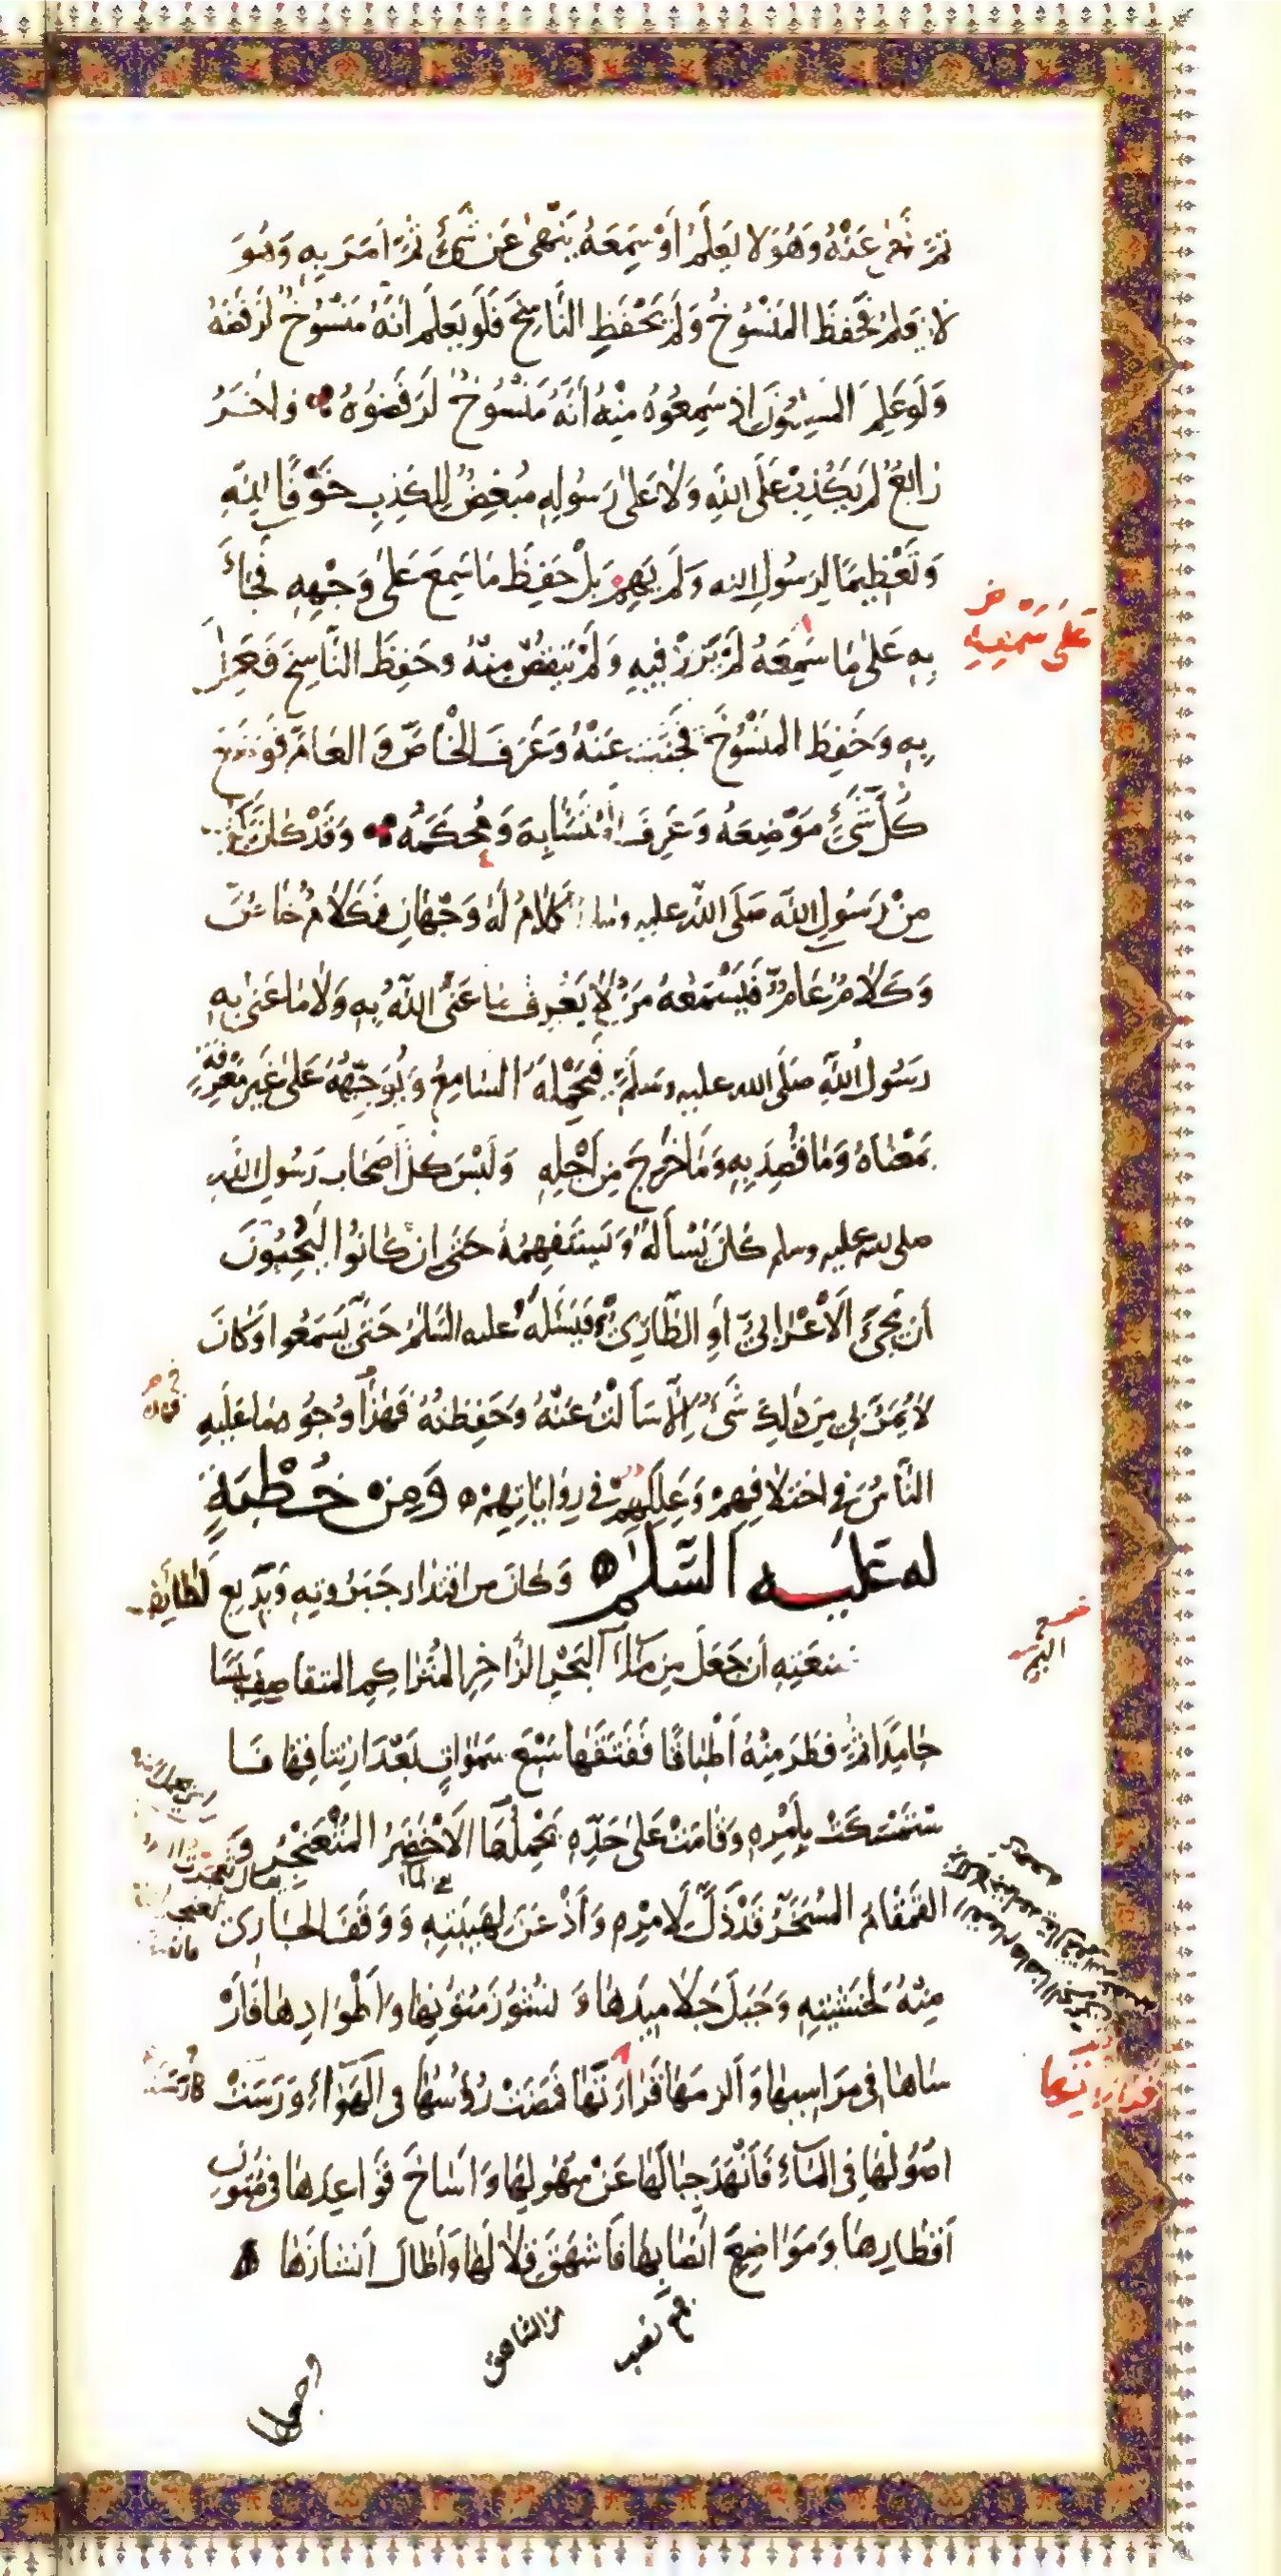 ثُمَّ نَهىٰ عَنْهُ وَهُوَ لا يَعْلَمُ أَوْ سَمِعَهُ يَنْهىٰ عَن شَىْءٍ ثُمَّ اَمَرَ بِهِ وَهُوَ
لا يَعْلَمُ فَحَفِظَ المَنْسُوخَ وَلَمْ يَحْفَظِ النَّاسِخَ فَلَو يَعْلَمُ أَنَّهُ مَنْسُوخٌ لَرَفَضَهُ
وَلَو عَلِمَ المُسْلِمُونَ إِذ سَمِعُوهُ مِنْهُ أَنَّهُ مَنْسُوخٌ لَرَفَضُوهُ وَاٰخَرُ
رَابِعٌ لَمْ يَكْذِبْ عَلَى اللّٰهِ وَلَا عَلىٰ رَسُولِهِ مُبْغِضٌ لِلكَذِبِ خَوْفًا لِلّٰهِ
وَتَعْظِيمًا لِرَسُولِ اللّٰه وَلَمْ يَهِمْ بَلْ حَفِظَ مَا سَمِعَ عَلىٰ وَجْهِهِ فَجَاءَ
عَلَى سَمْعِهِ
بِهِ عَلىٰ مَا سَمِعَهُ لَمْ يَزِدْ فِيهِ وَلَمْ يَنْقُصْ مِنْهُ وَحَفِظَ النَّاسِخَ فَعَمِلَ
بِهِ وَحَفِظَ المَنْسُوخَ فَجَنَّبَ عَنْهُ وَعَرَفَ الْخَاصَّ وَ العَامَّ فَوَضَعَ
كُلَّ شَىْءٍ مَوْضِعَهُ وَعَرِفَ المُتَشَابِهَ وَمُحْكَمَهُ وَقَدْ كَانَ
مِنْ رَسُولِ اللّٰه صَلَى اللّٰه عليه كَلَامٌ لَهُ وَجْهَانِ فَكَلَامٌ خَاصٌّ
وَكَلَامٌ عَامٌّ فَيَسْمَعُهُ مَنْ لَا يَعْرِفُ مَا عَنَى اللّٰهُ بِهِ وَلَا مَا عَنىٰ بِهِ
رَسُولُ اللّٰهِ صَلَى الله عليه وسَلَّمَ فَيَحْمِلُهُ السَّامِعُ وَيُوَجِّهُهُ عَلىٰ غَيْرِ مَعْرِفَةٍ
بِمَعْنَاهُ وَمَا قُصِدَ بِهِ وَمَا خَرَجَ مِنْ أَجْلِهِ وَلَيْسَ كُلُّ أَصْحَابِ رَسُولِ اللّٰهِ
صلى الله عليه وسلم كَانَ يَسْأَلُهُ وَيَسْتَفْهِمُهُ حَتّى ان كَانُوا لَيُحِبُّونَ
أَنْ يَجِىءَ الْأَعْرَابِىُّ أَوِ الطَّارِىءُ فَيَسْئَلَهُ عليه السَّلمُ حَتىٰ يَسْمَعُوا وَكَانَ
لَا يَمُرُّ بِى مِنْ ذٰلِكَ شَىْءٌ إِلَّا سَأَلْتُ عَنْهُ وَحَفِظْتُهُ فَهٰذَا وُجُوهُ مَا عَلَيْهِ
النَّاسُ فى اختلافِهِمْ وَعِلَلِهِمْ فى رِوَايَاتِهِمْ وَمِنْ خُطْبَةٍ
له عَلَيْه السَّلَام وَكَانَ من اقتِدَارِ جَبَرُوتِهِ وَبَدِيعِ لَطَائِفِ
صَنْعَتِهِ أن جَعَلَ مِن مَاءِ البَحْرِ الزَّاخِرِ المُتَرَاكِمِ المتقاصِفِ يَبَسًا
البحر
جَامِدًا ثُمَّ فَطَرَ مِنْهُ أَطْبَاقًا فَفَتَقَهَا سَبْعَ سَمٰوَاتٍ بَعْدَ ارْتِتَاقِهَا فَا
سْتَمْسَكَتْ بِأَمْرِهِ وَقَامَتْ عَلىٰ حَدِّهِ يَحْمِلُهَا الْأَخْضَرُ المُثْعَنْجِرُ وَ
القَمْقَامُ المُسَخَّرُ قَدْ ذَلَّ لِأَمْرِهِ وَأَذْعَنَ لِهَيْبَتِهِ وَوَقَفَ الجَارِى
مِنْهُ لِخَشْيَتِهِ وَجَبَلَ جَلَامِيدَهَا وَ نُشُوزَ مُتُونِهَا وَأَطْوَادِهَا فَأَرْ
سَاهَا فى مَرَاسِيهَا وَأَلزَمَهَا قَرَارَتَهَا فَمَضَتْ رُؤُسُهَا فى الهَوَاءِ وَرَسَتْ
اصُولُهَا فى المَاءِ فَأَنْهَدَ جِبَالَهَا عَنْ سُهُولِهَا وَاَسَاخَ قَوَاعِدَهَا فى مُتُونِ
اَقْطَارِهَا وَمَوَاضِعِ انْصَابِهَا فَاَشْهَقَ قِلَالَهَا وَأَطَالَ اَنْشَازَهَا
من الشاهق
جمع نصب